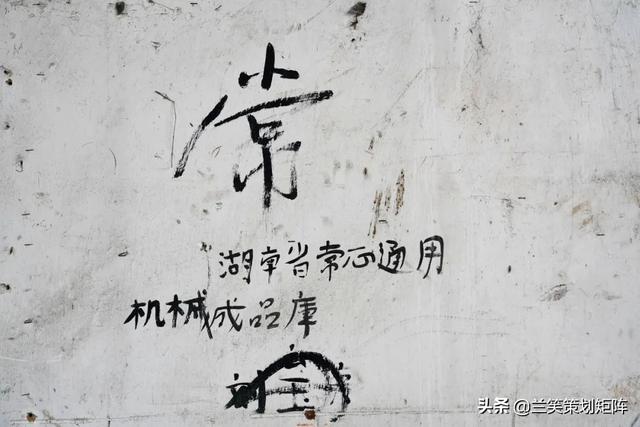 常
湖南省常通用
机械成品庫
头条 @兰笑策划矩阵